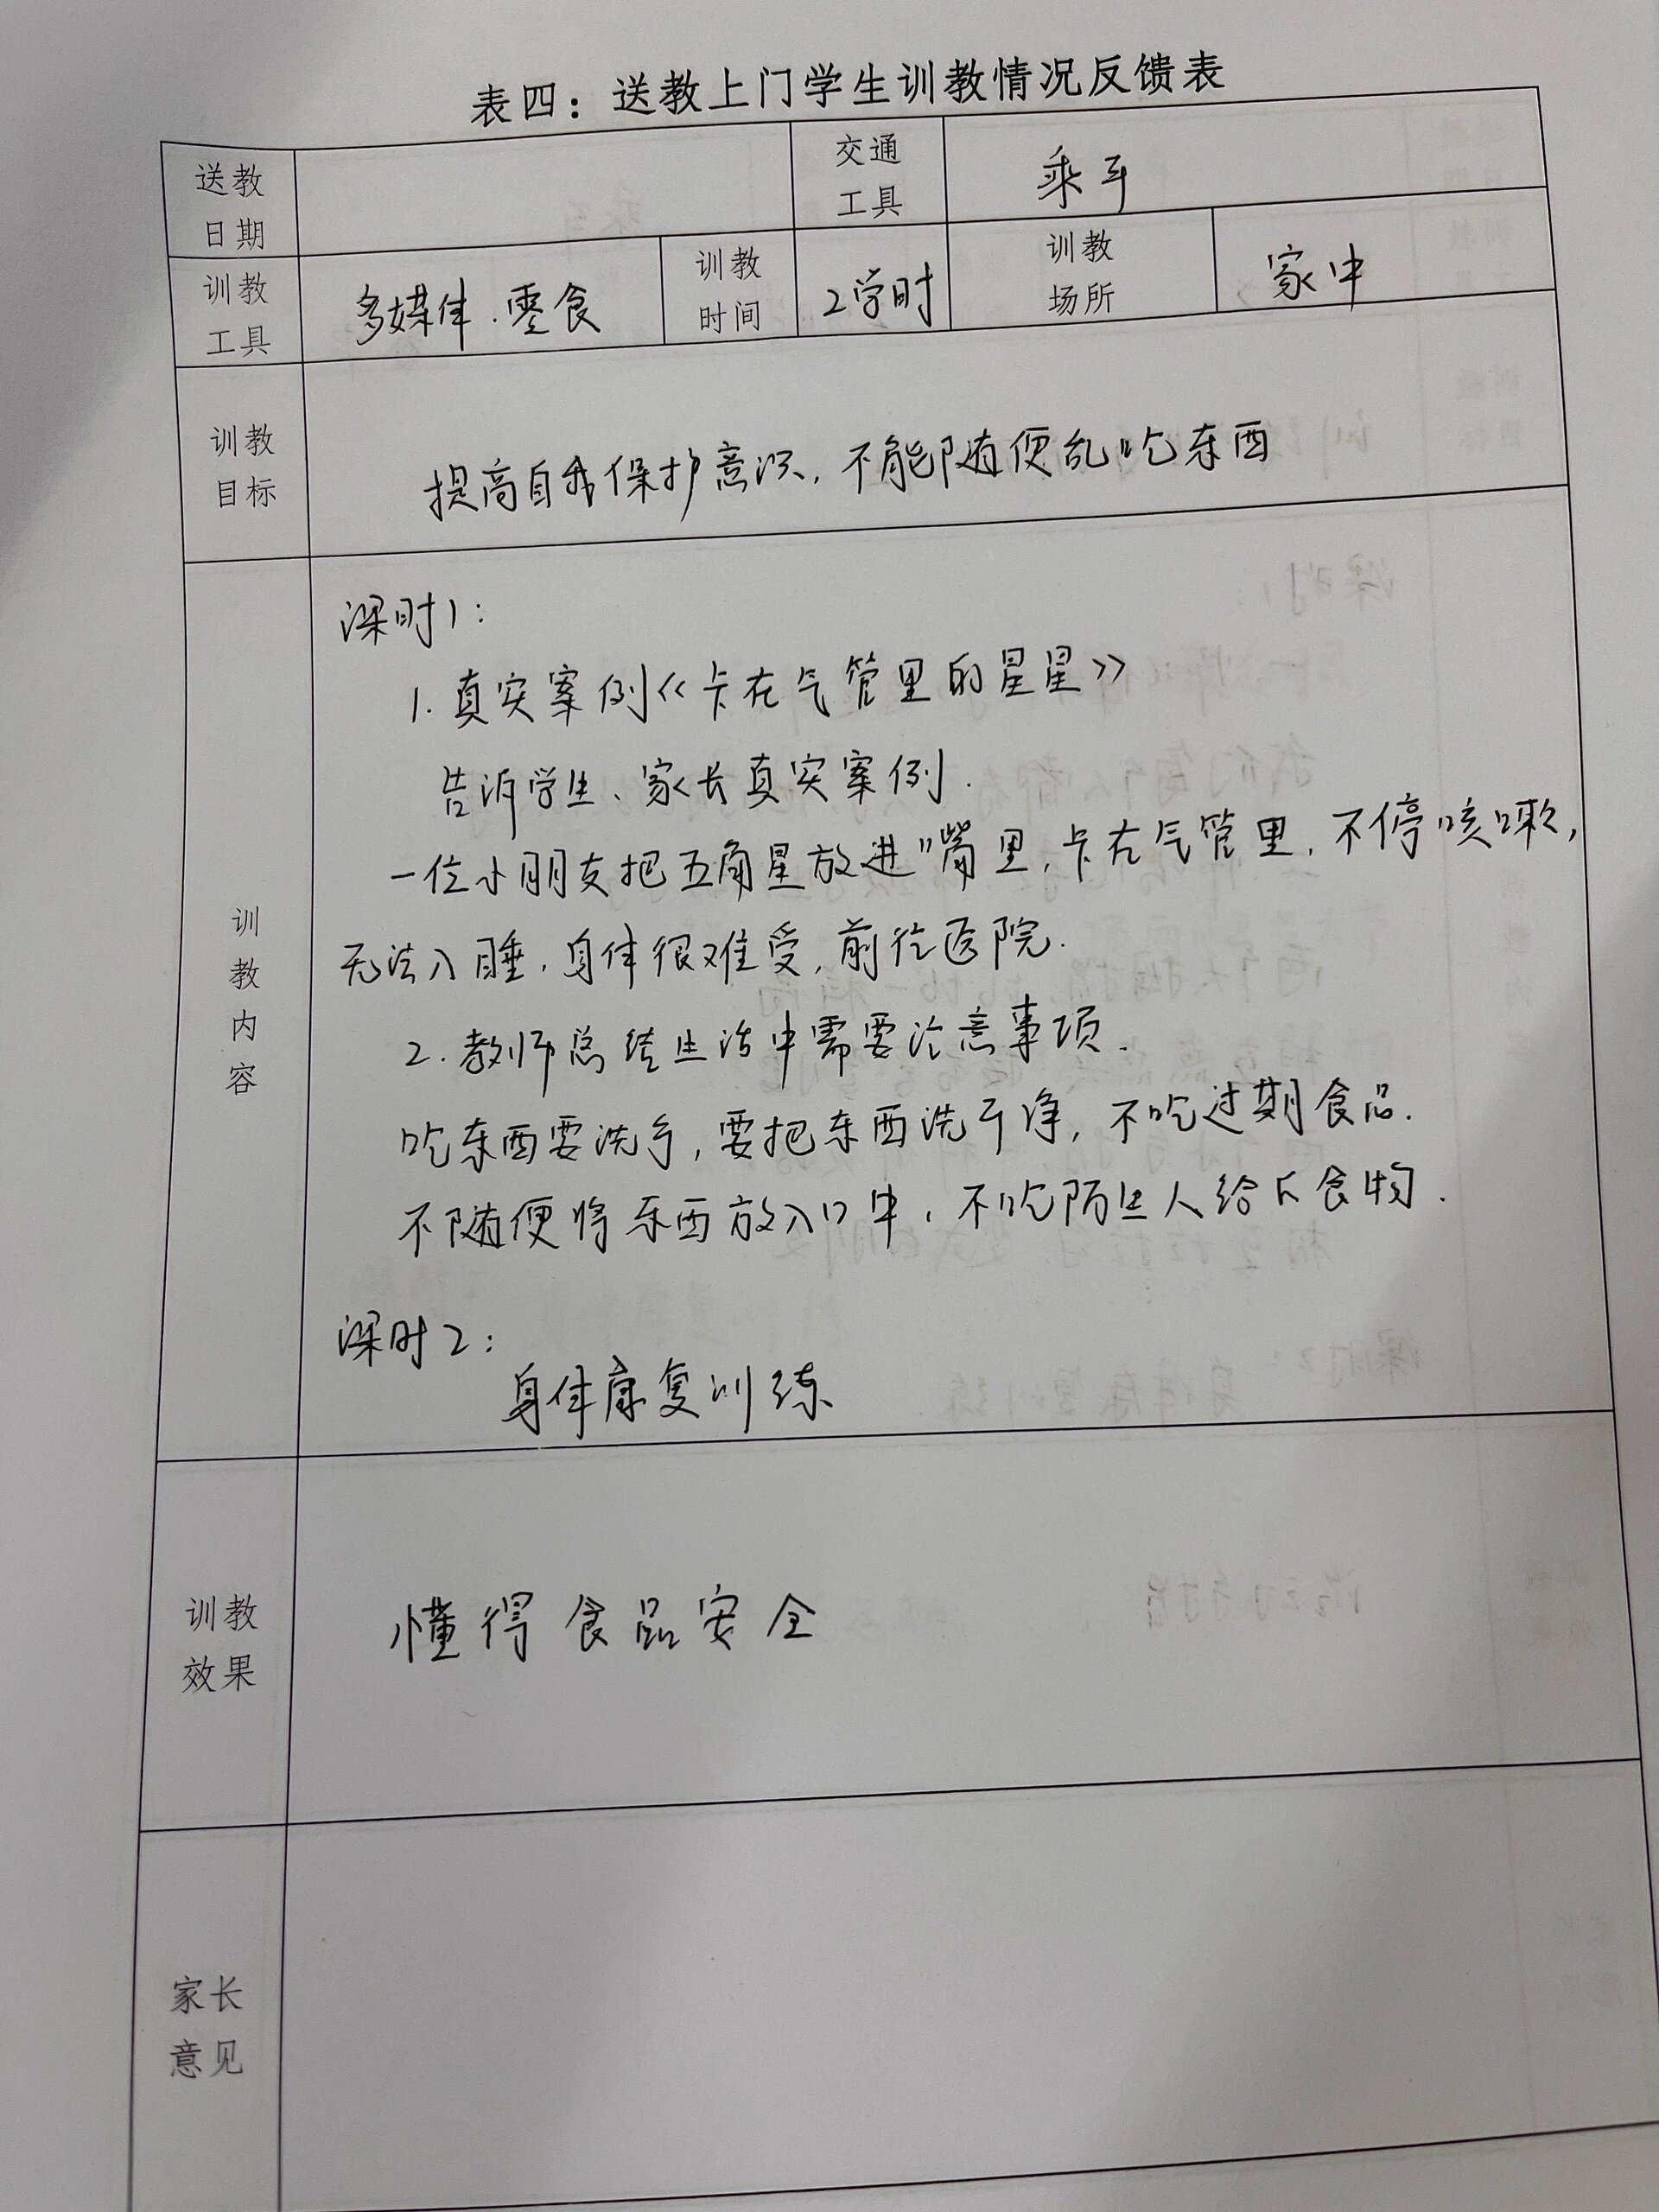 表四：送教上门学生训教情况反馈表
送教日期
交通工具 乘车
训教工具 多媒体.零食 训教时间 2学时 训教场所 家中
训教目标 提高自我保护意识,不能随便乱吃东西
训教内容
课时1:
1.真实案例《卡在气管里的星星》
告诉学生、家长真实案例.
一位小朋友把五角星放进嘴里,卡在气管里,不停咳嗽,
无法入睡,身体很难受,前往医院.
2.教师总结生活中需要注意事项.
吃东西要洗手,要把东西洗干净,不吃过期食品.
不随便将东西放入口中,不吃陌生人给的食物.
课时2:
身体康复训练
训教效果 懂得食品安全
家长意见